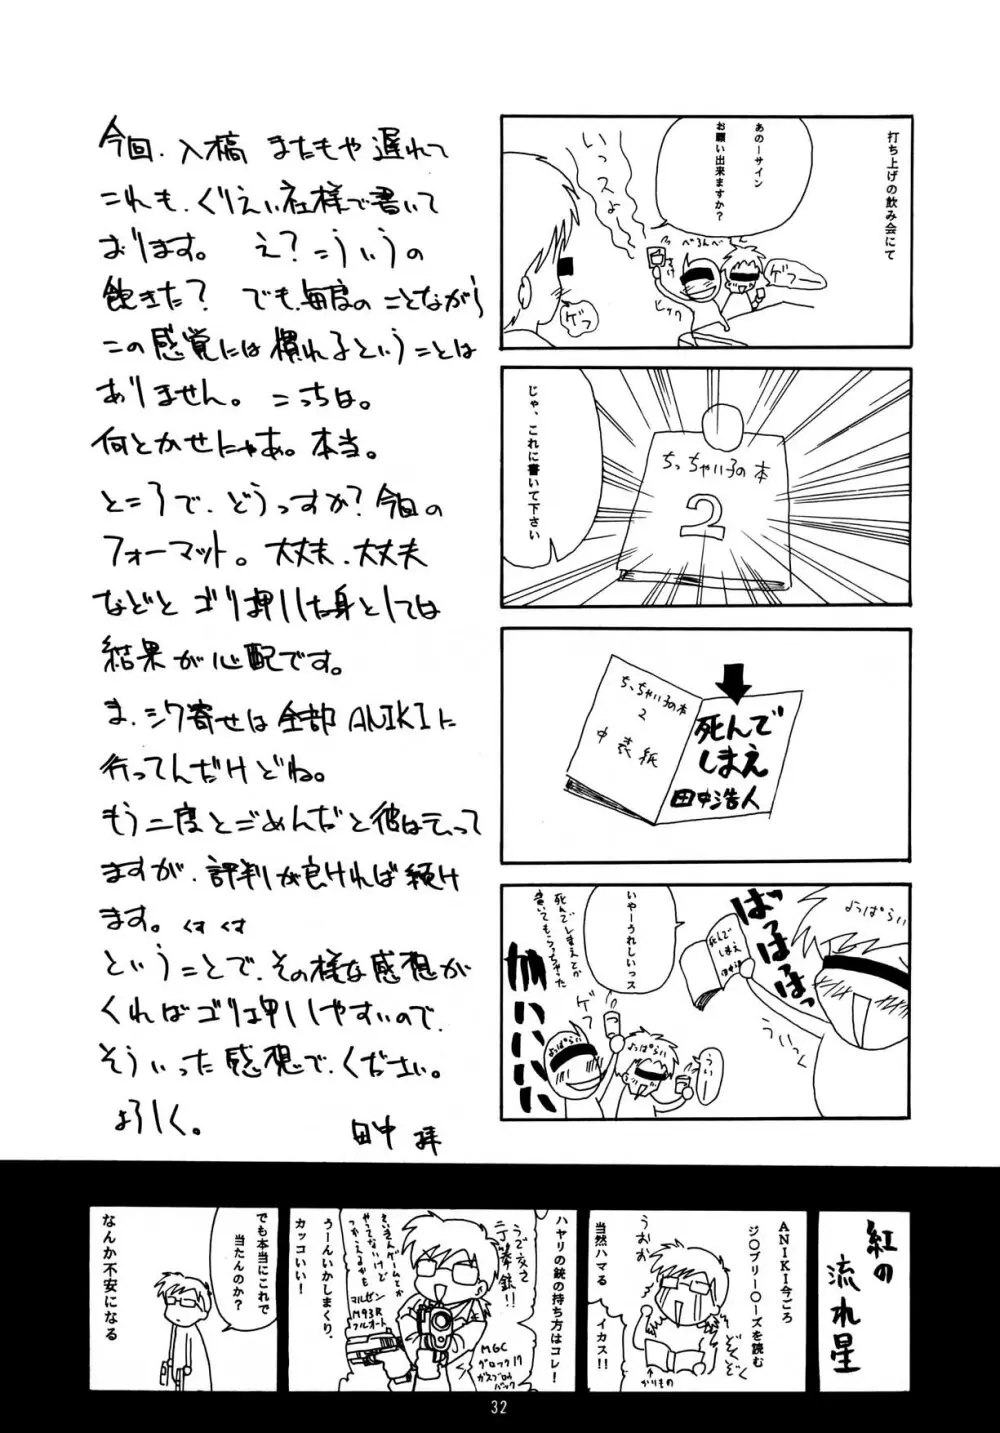 今回、入稿 またもや 遅れて
これも、くりえい社様で書いて
おります。 え？こういうの
飽きた？ でも、毎度のことながら
この感覚には慣れるということは
ありません。こっちは。
何とかせにゃあ。本当。
ところで、どうっすか？今回の
フォーマット。大丈夫、大丈夫
などと ゴリ押しした身としては
結果が心配です。
ま、シワ寄せは全部 ANIKIに
行ってんだけどね。
もう二度とごめんだと彼は云って
ますが、評判が良ければ続け
ます。くすくす
ということで、その様な感想が
くればゴリ押ししやすいので、
そういった感想で、ください。
よろしく。
田中 拝
打ち上げの飲み会にて
あのーサイン
お願い出来ますか？
いっスよ
べろんべ
さけ
ヒック
ゲフ
ゲフー
じゃ、これに書いて下さい
ちっちゃい子の本
2
ちっちゃい子の本
2
中表紙
死んで
しまえ
田中浩人
よっぱらい
ばっはっはっはっ
死んで
しまえ
田中浩
ういっく
いやーうれしいっス
死んでしまえとか
書いてもらっちゃった
ゲフ
よっぱらい
よっぱらい
うぃー
紅の
流れ星
ANIKI今ごろ
ジ○ブリー○ーズを読む
うおお
ぞくぞく
↑かりもの
当然ハマる イカス!!
ハヤリの銃の持ち方はコレ！
うで交さ
二丁拳銃!!
マルゼン
M93R
フルオート
MGC
グロック17
ガスブロバック
うーんいかしまくり、
カッコいい！
でも本当にこれで
当たんのか？
なんか不安になる
32